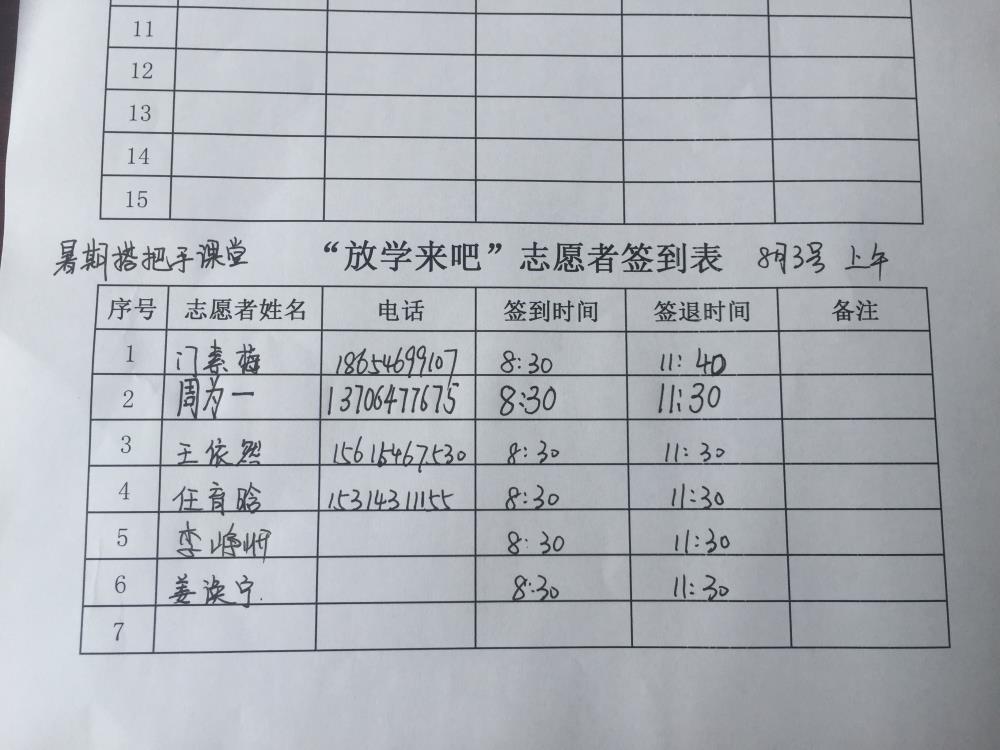 11
12
13
14
15
暑期搭把手课堂 “放学来吧”志愿者签到表 8月3号 上午
序号 志愿者姓名 电话 签到时间 签退时间 备注
1 门素梅 18654699107 8:30 11:40
2 周为一 13706477675 8:30 11:30
3 王依然 15615467530 8:30 11:30
4 任育晗 15314311155 8:30 11:30
5 李 8:30 11:30
6 姜涣宁 8:30 11:30
7